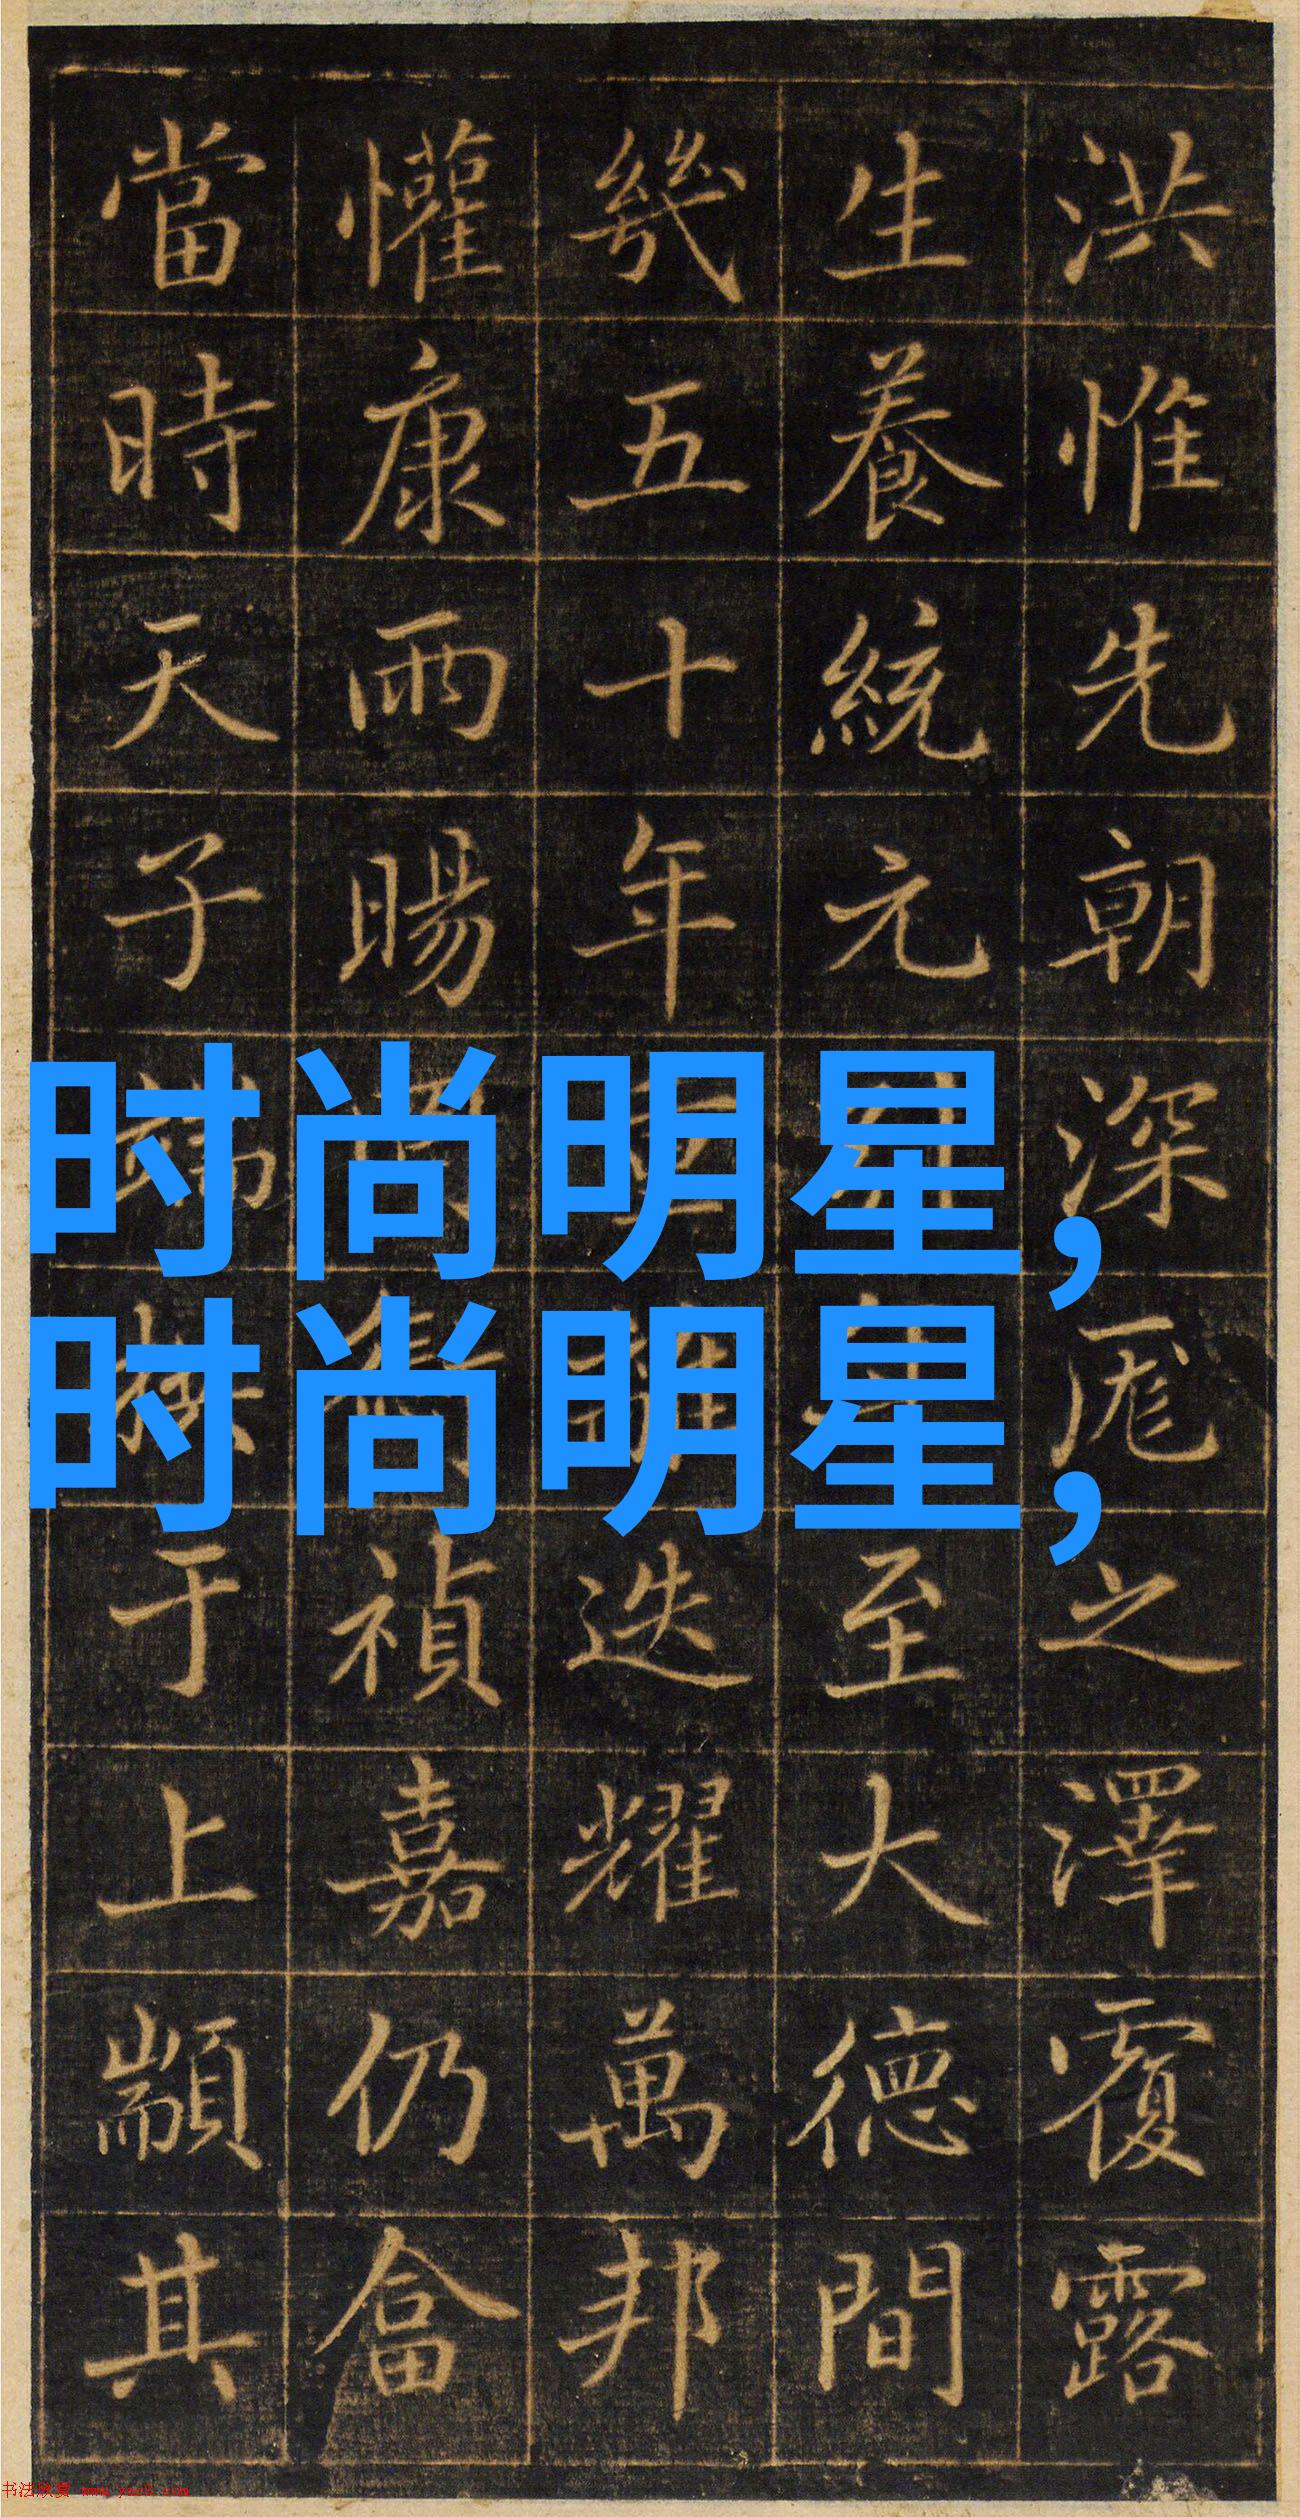 洪惟先朝深厖之澤覆露
生養統元至大德間
幾五十年重迭耀萬邦
懽康雨暘禎嘉仍畣
當時天子端拱于上顓其
时尚明星,
时尚明星,
书法欣赏 www.yac8.com